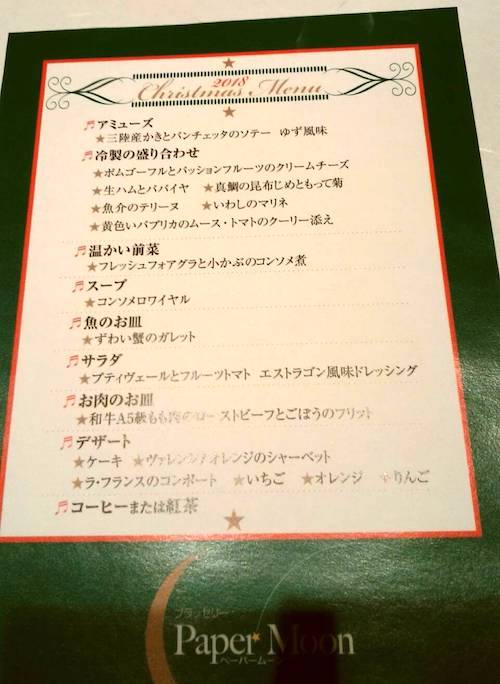 2018
Christmas Menu
アミューズ
★三陸産かきとパンチェッタのソテー ゆず風味
冷製の盛り合わせ
★ポムゴーフルとパッションフルーツのクリームチーズ
★生ハムとパパイヤ ★真鯛の昆布じめともって菊
★魚介のテリーヌ ★いわしのマリネ
★黄色いパプリカのムース・トマトのクーリー添え
温かい前菜
★フレッシュフォアグラと小かぶのコンソメ煮
スープ
★コンソメロワイヤル
魚のお皿
★ずわい蟹のガレット
サラダ
★プティヴェールとフルーツトマト エストラゴン風味ドレッシング
お肉のお皿
★和牛A5級もも肉のローストビーフとごぼうのフリット
デザート
★ケーキ ★ヴァレンシアオレンジのシャーベット
★ラ・フランスのコンポート ★いちご ★オレンジ ★りんご
コーヒーまたは紅茶
ブラッセリー
Paper Moon
ペーパームーン